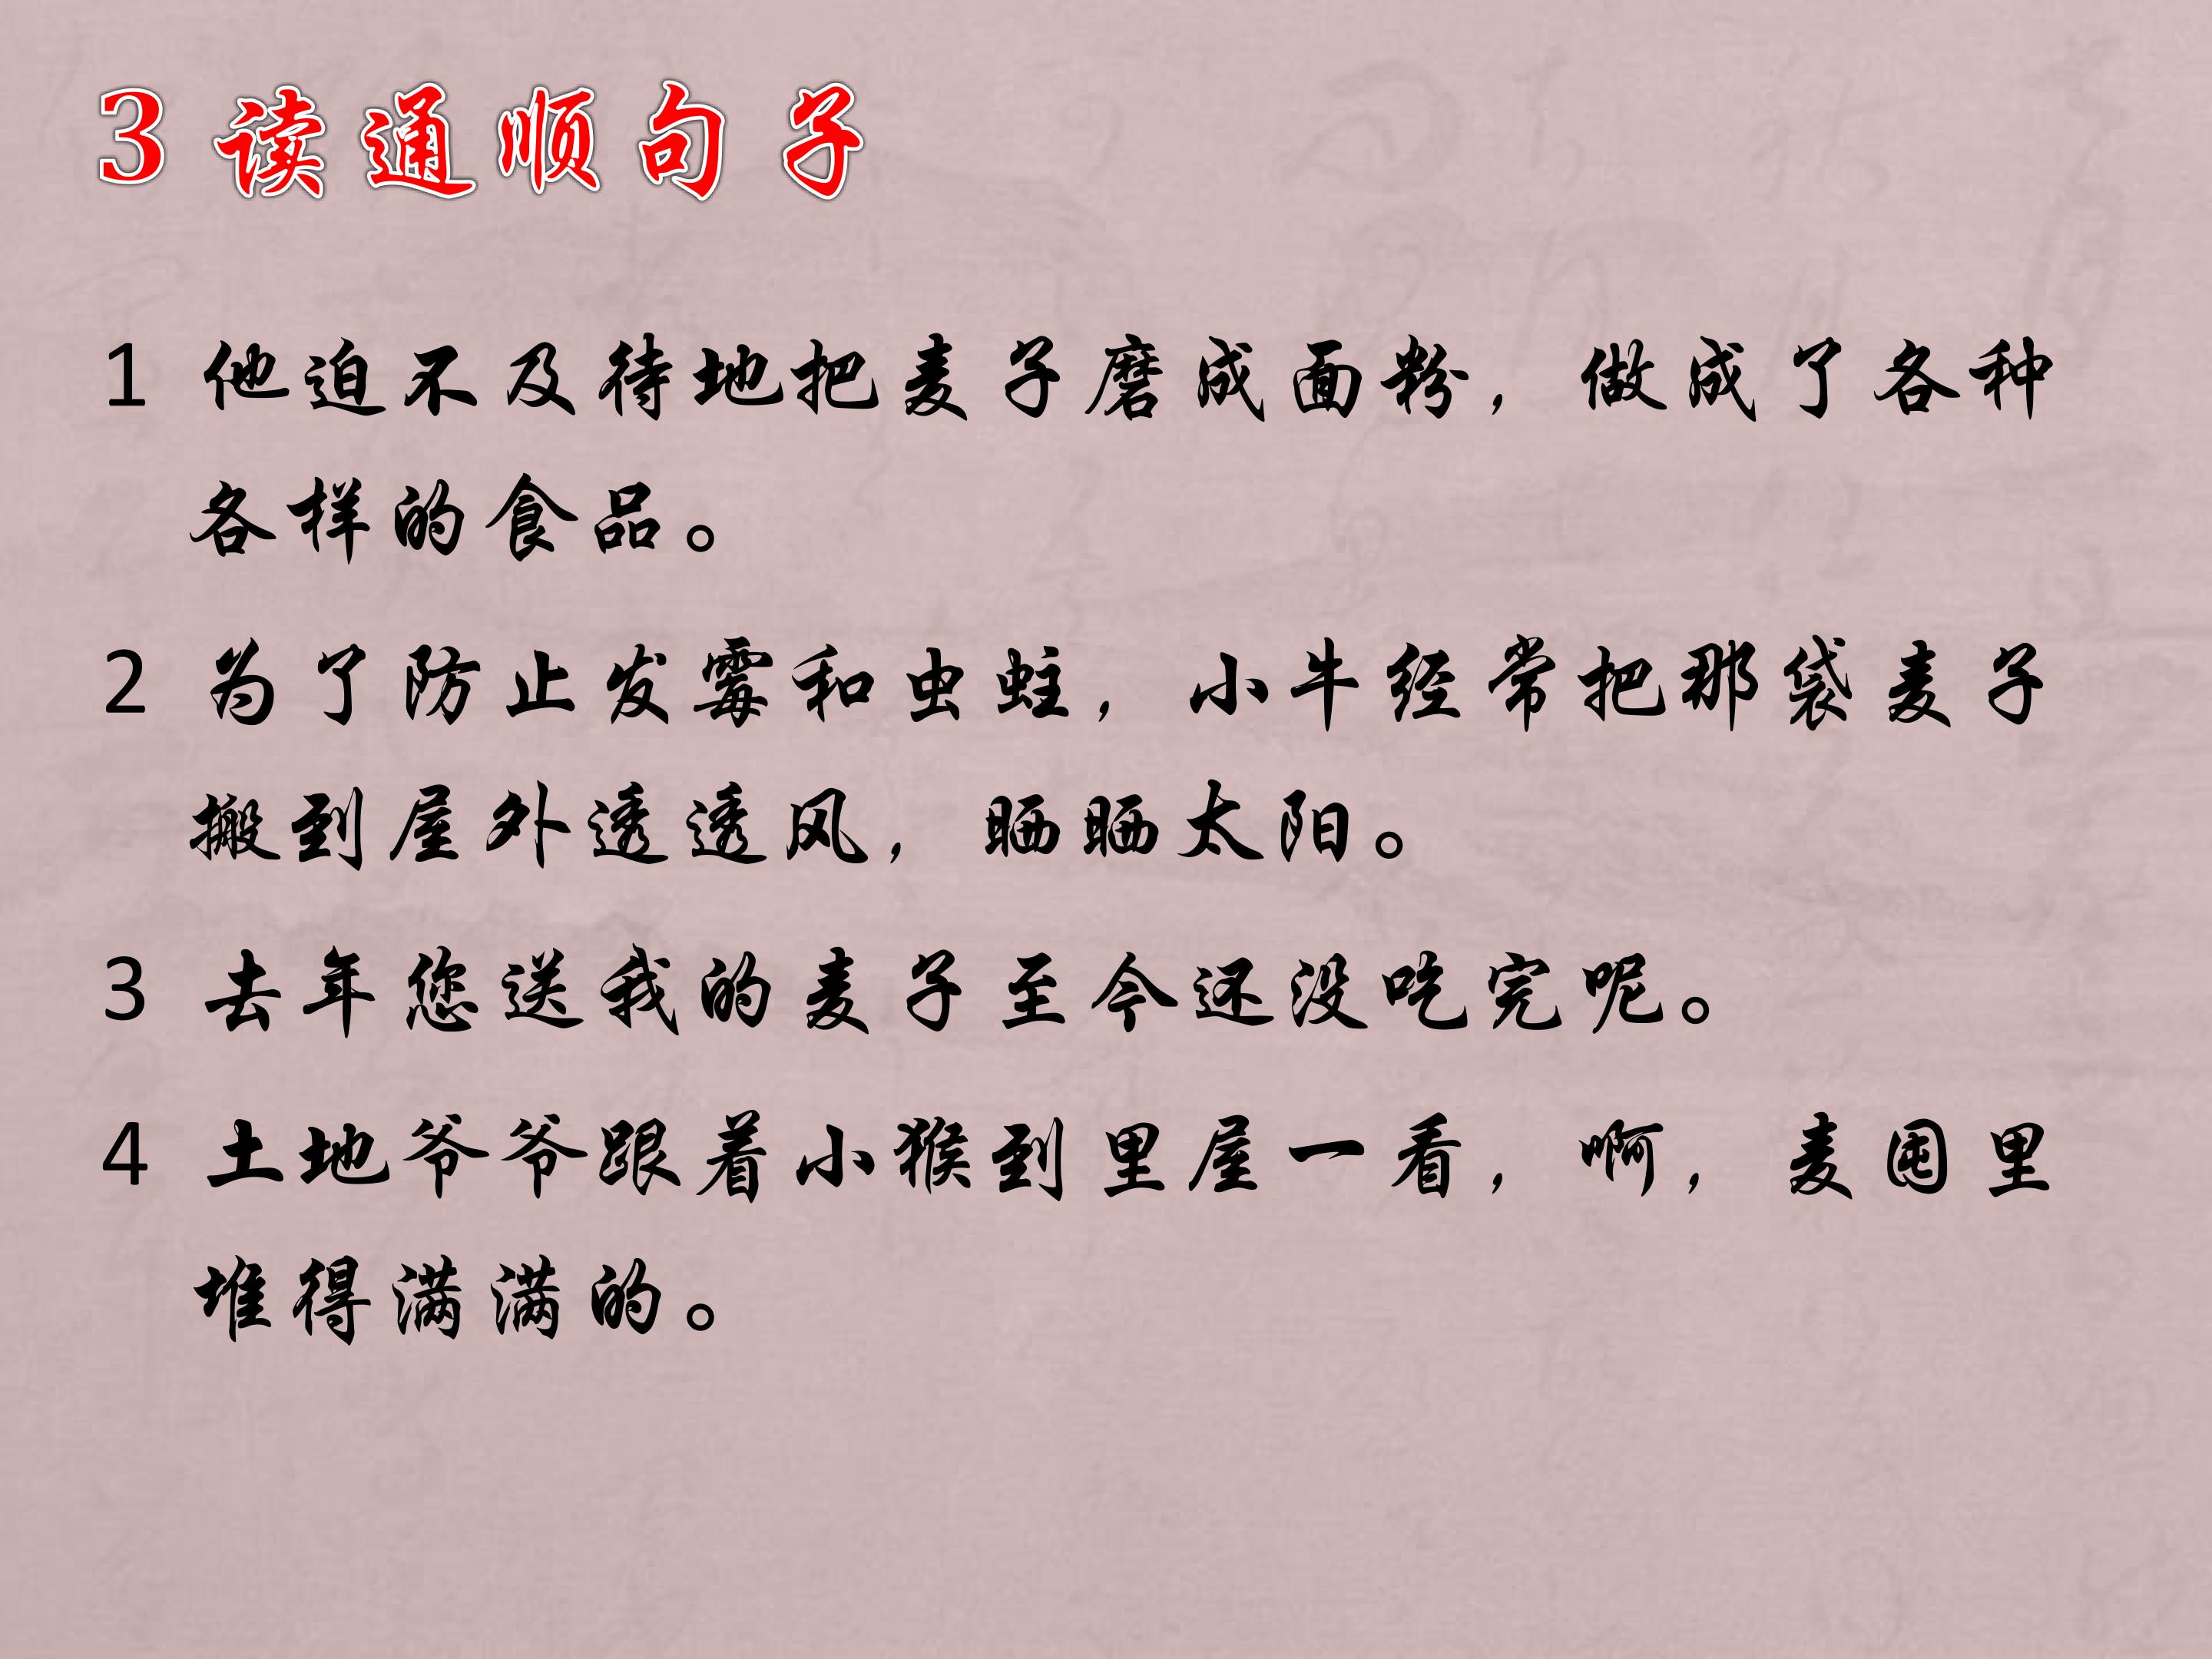 3 读通顺句子
1 他迫不及待地把麦子磨成面粉，做成了各种
各样的食品。
2 为了防止发霉和虫蛀，小牛经常把那袋麦子
搬到屋外透透风，晒晒太阳。
3 去年您送我的麦子至今还没吃完呢。
4 土地爷爷跟着小猴到里屋一看，啊，麦囤里
堆得满满的。